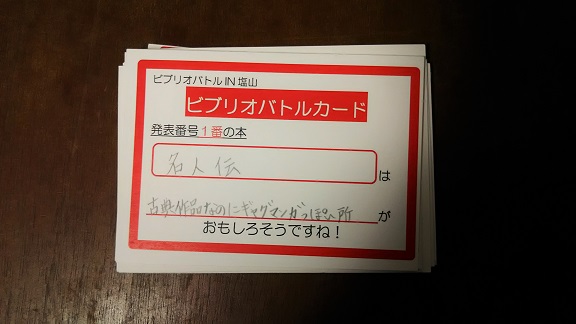 ビブリオバトル IN 塩山
ビブリオバトルカード
発表番号1番の本
名人伝
は
古典作品なのにギャグマンガっぽい所
が
おもしろそうですね！